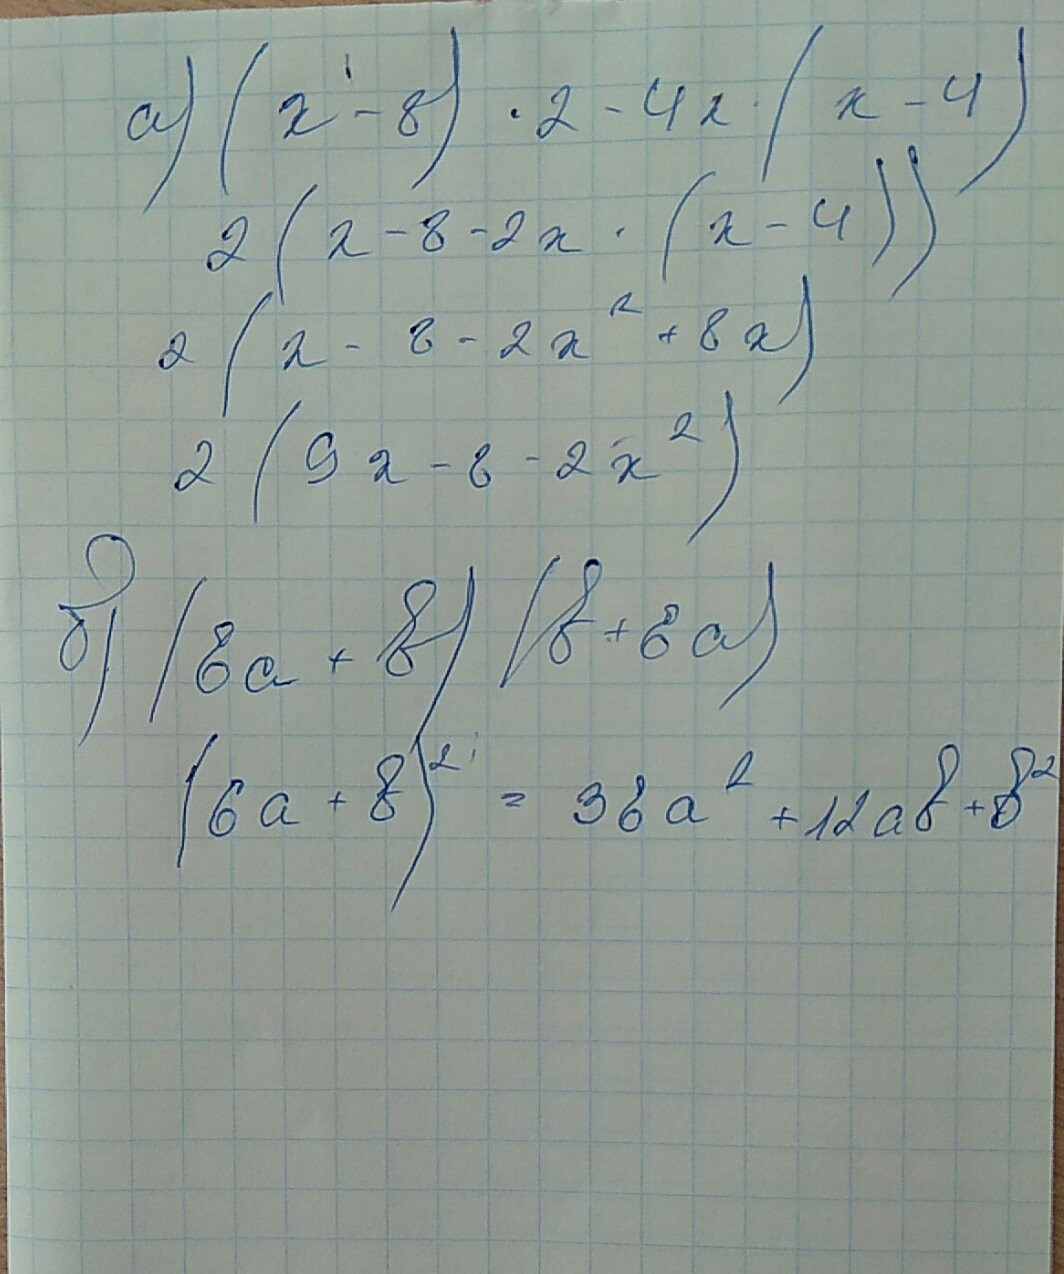 а) (x - 8) · 2 - 4x · (x - 4)
2(x - 8 - 2x · (x - 4))
2(x - 8 - 2x² + 8x)
2(9x - 8 - 2x²)
б) (6a + b)(b + 6a)
(6a + b)² = 36a² + 12ab + b²